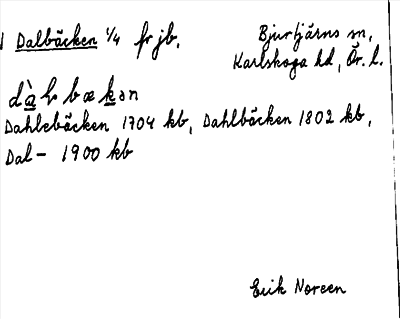 Dalbäcken 1/4 fr jb. Bjurtjärns sn,
Karlskoga hd, Ör. l.
dàlbækən
Dahlebäcken 1704 kb, Dahlbäcken 1802 kb,
Dal- 1900 kb
Erik Noreen